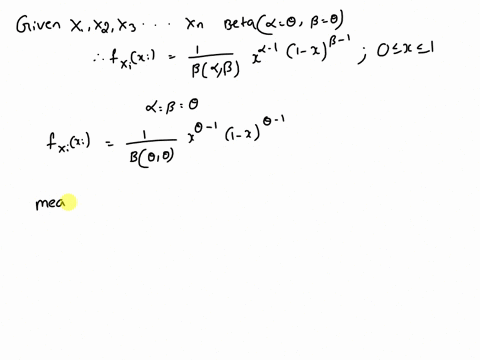 Given X1, X2, X3 ··· Xn Beta(α=θ, β=θ)
∴ fxi(xi) = 1/β(α,β) x^(α-1) (1-x)^(β-1) ; 0≤x≤1
α=β=θ
fxi(xi) = 1/B(θ,θ) x^(θ-1) (1-x)^(θ-1)
mea